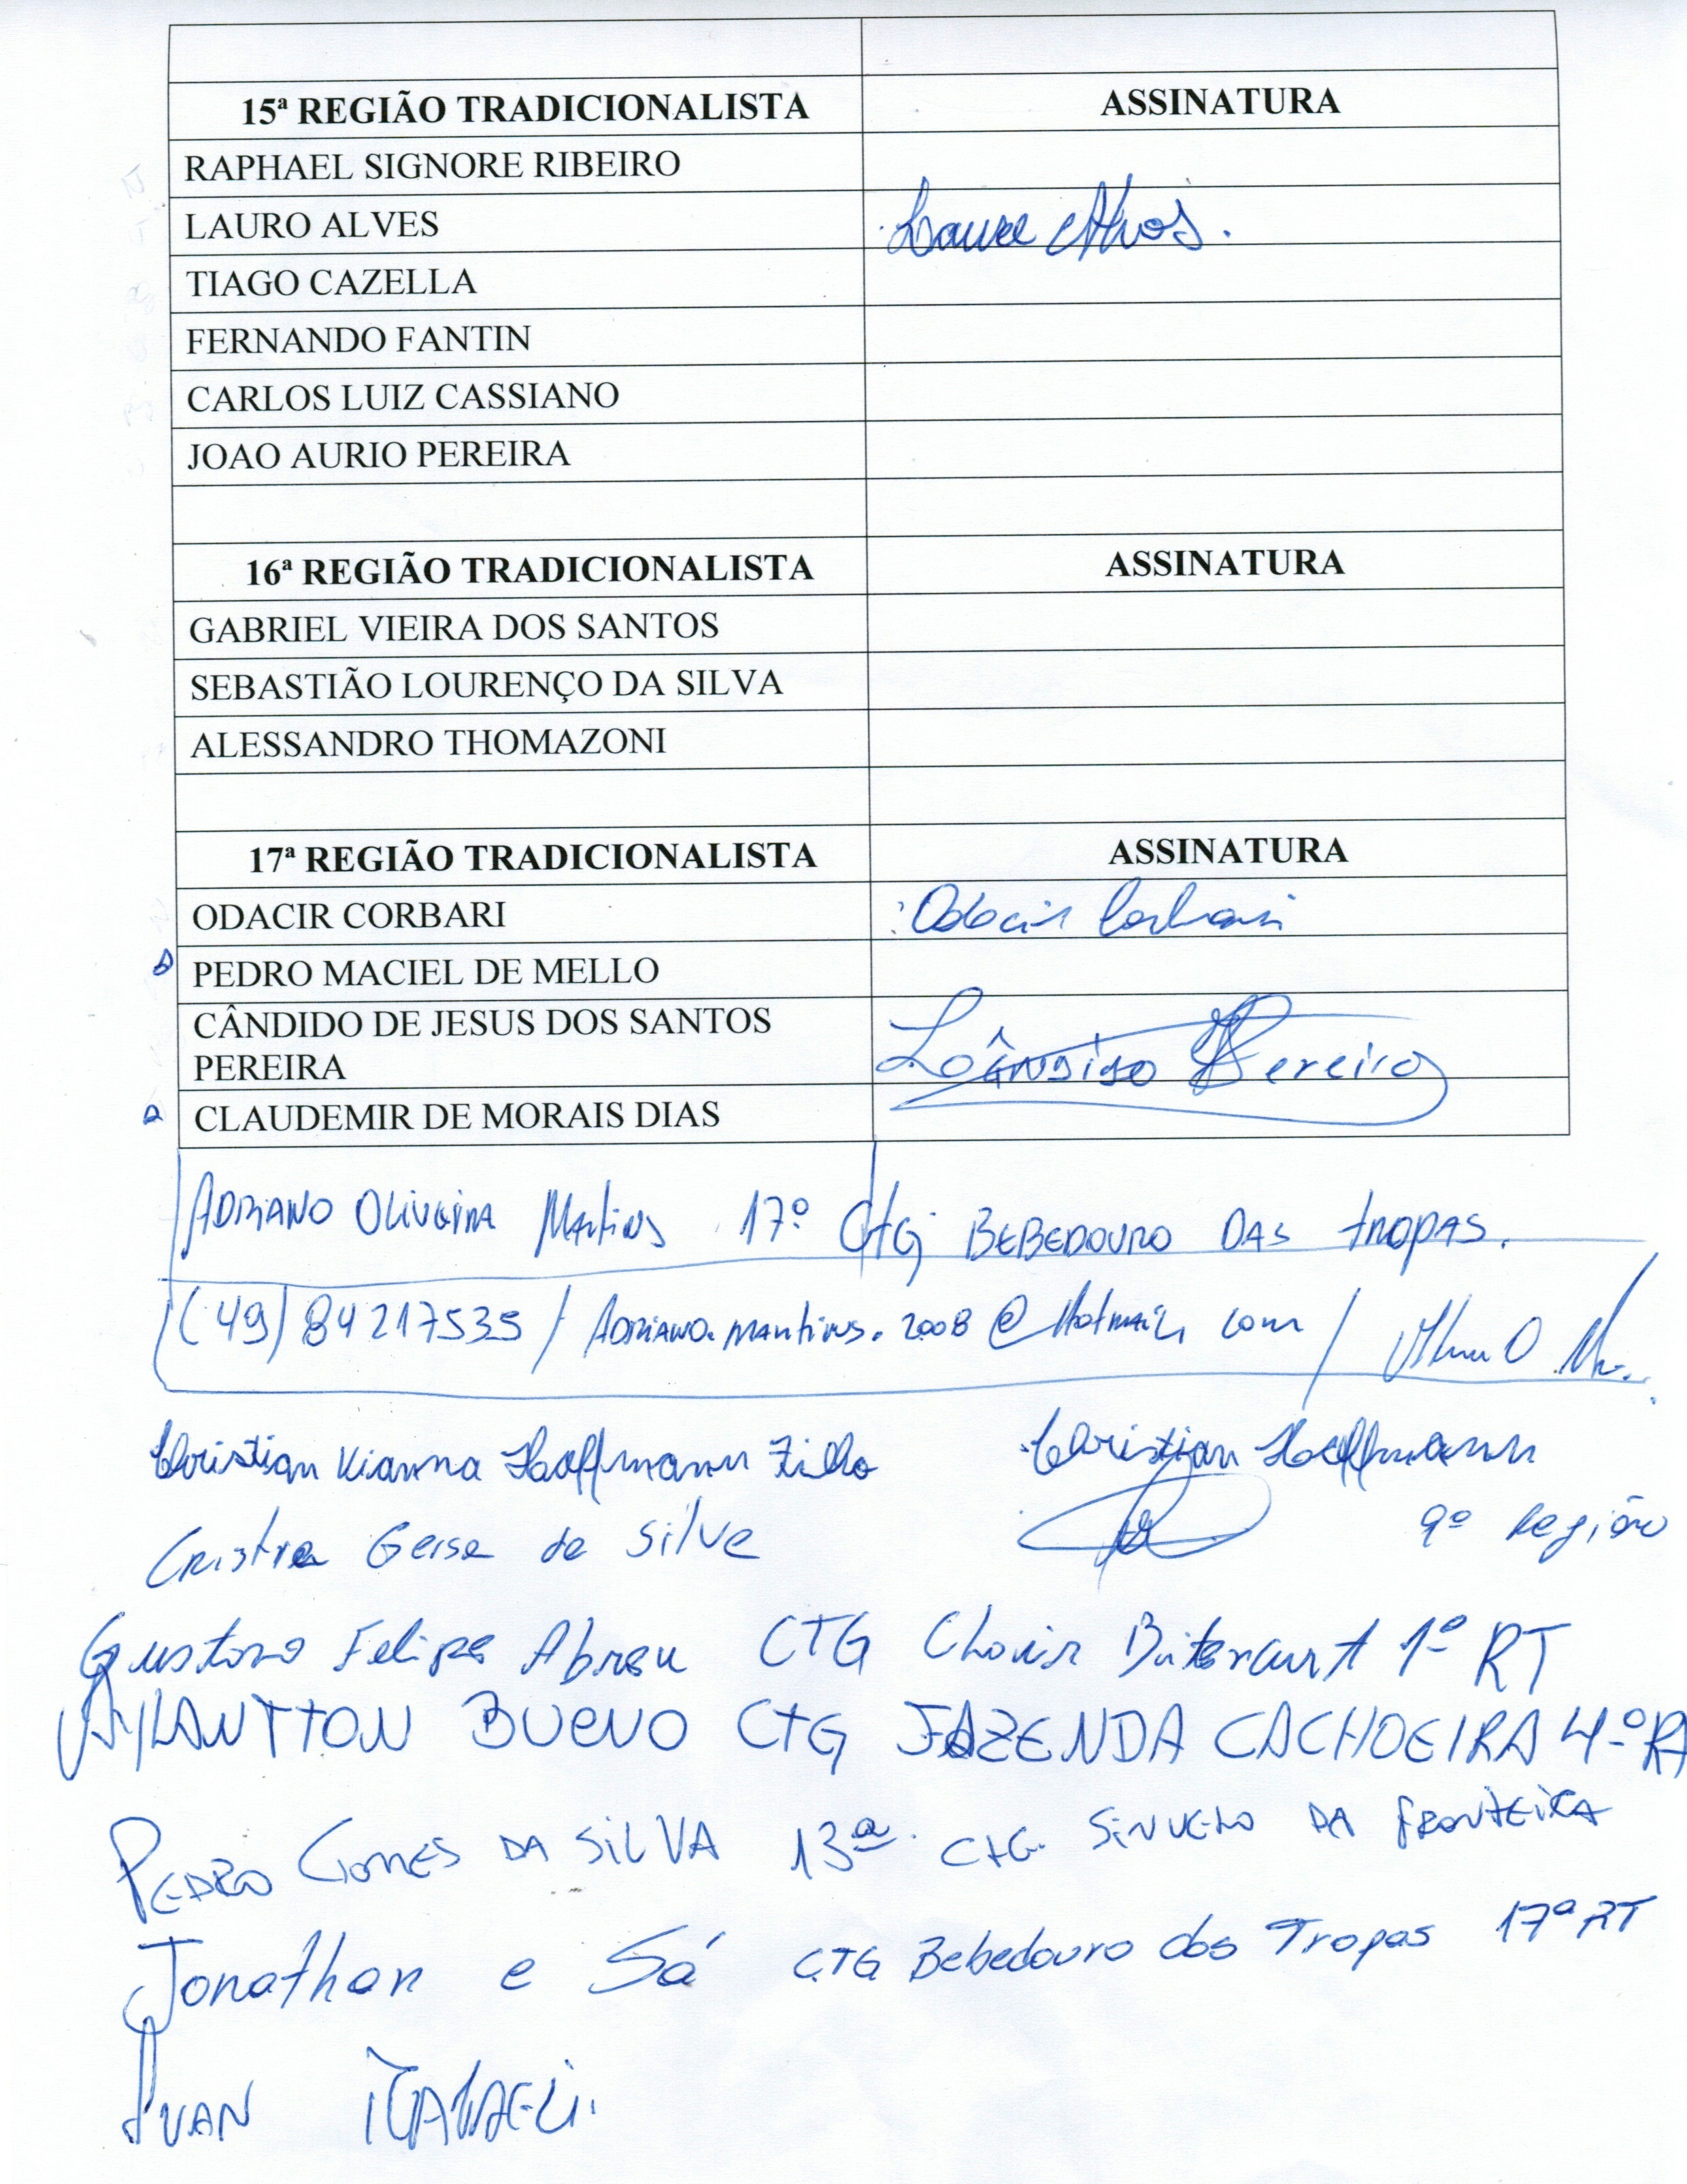 15ª REGIÃO TRADICIONALISTA ASSINATURA
RAPHAEL SIGNORE RIBEIRO
LAURO ALVES Lauro Alves.
TIAGO CAZELLA
FERNANDO FANTIN
CARLOS LUIZ CASSIANO
JOAO AURIO PEREIRA
16ª REGIÃO TRADICIONALISTA ASSINATURA
GABRIEL VIEIRA DOS SANTOS
SEBASTIÃO LOURENÇO DA SILVA
ALESSANDRO THOMAZONI
17ª REGIÃO TRADICIONALISTA ASSINATURA
ODACIR CORBARI Odacir Corbari
PEDRO MACIEL DE MELLO
CÂNDIDO DE JESUS DOS SANTOS
PEREIRA Cândido Pereira
CLAUDEMIR DE MORAIS DIAS
ADRIANO OLIVEIRA Martins 17º CTG BEBEDOURO DAS tROPAS.
(49) 84217535 / ADRIANO.MARTINS.2008@Hotmail com /
Christian Vianna Hoffmann Christian Hoffmann
Geise da Silva 9ª Região
Gustavo Felipe Abreu CTG Bitencurt 1ª RT
BUENO CTG FAZENDA CACHOEIRA 4ª
PEDRO GOMES DA SILVA 13ª CTG. SINUELO DA FRONTEIRA
Jonathan e Sá CTG Bebedouro das Tropas 17ª RT
IVAN